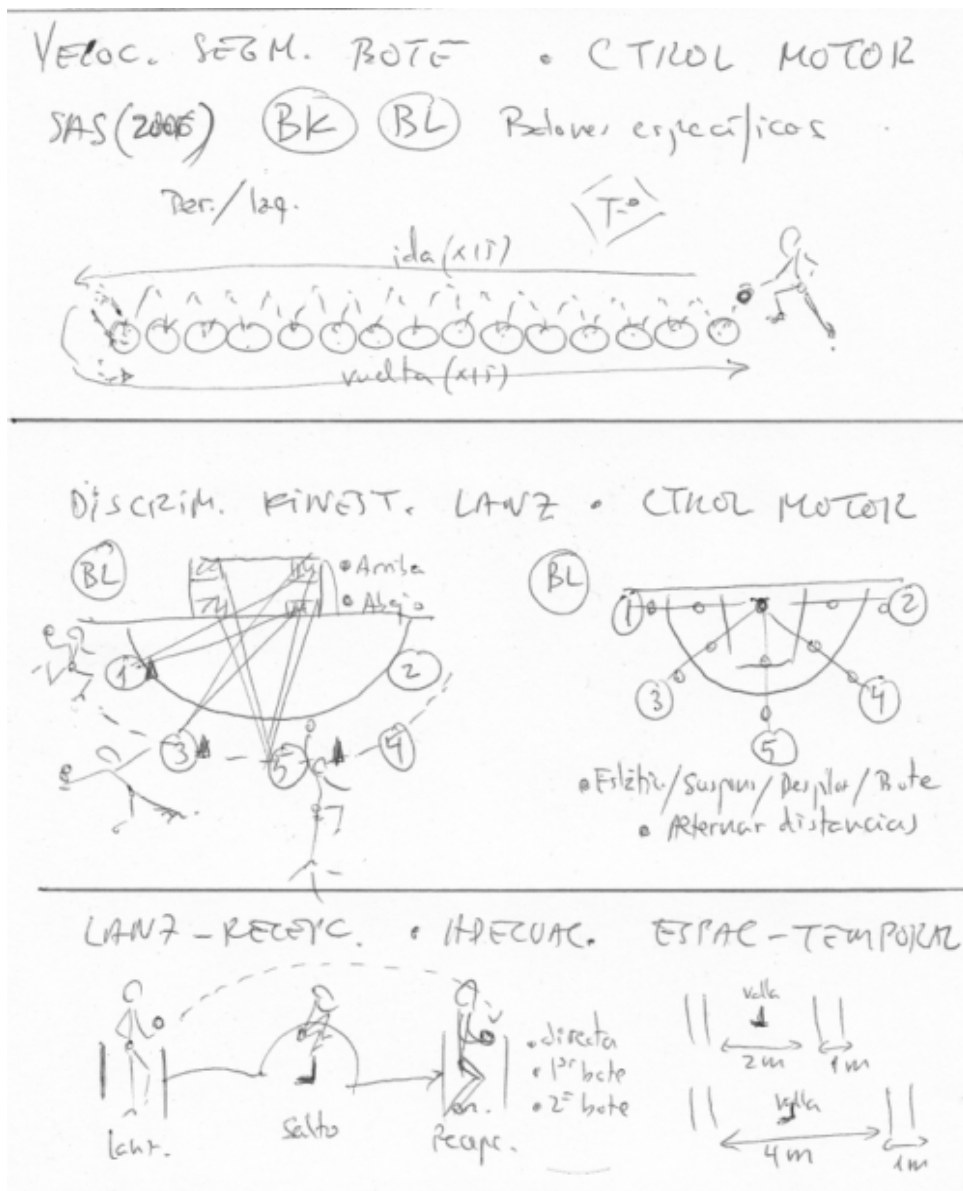 VELOC. SEGM. BOTE • CTROL MOTOR
SAS (2006) BK BL Balones específicos
Der./Izq.
Tº
ida (x15)
vuelta (x15)
DISCRIM. KINEST. LANZ • CTROL MOTOR
BL
• Arriba
• Abajo
1
2
3
5
4
BL
1
2
3
4
5
• Estátic/Suspens/Desplaz/Bote
• Alternar distancias
LANZ-RECEPC. • ADECUAC. ESPAC-TEMPORAL
• directa
• 1er bote
• 2º bote
Lanz.
Salto
Recepc.
valla
2m
1m
valla
4m
1m